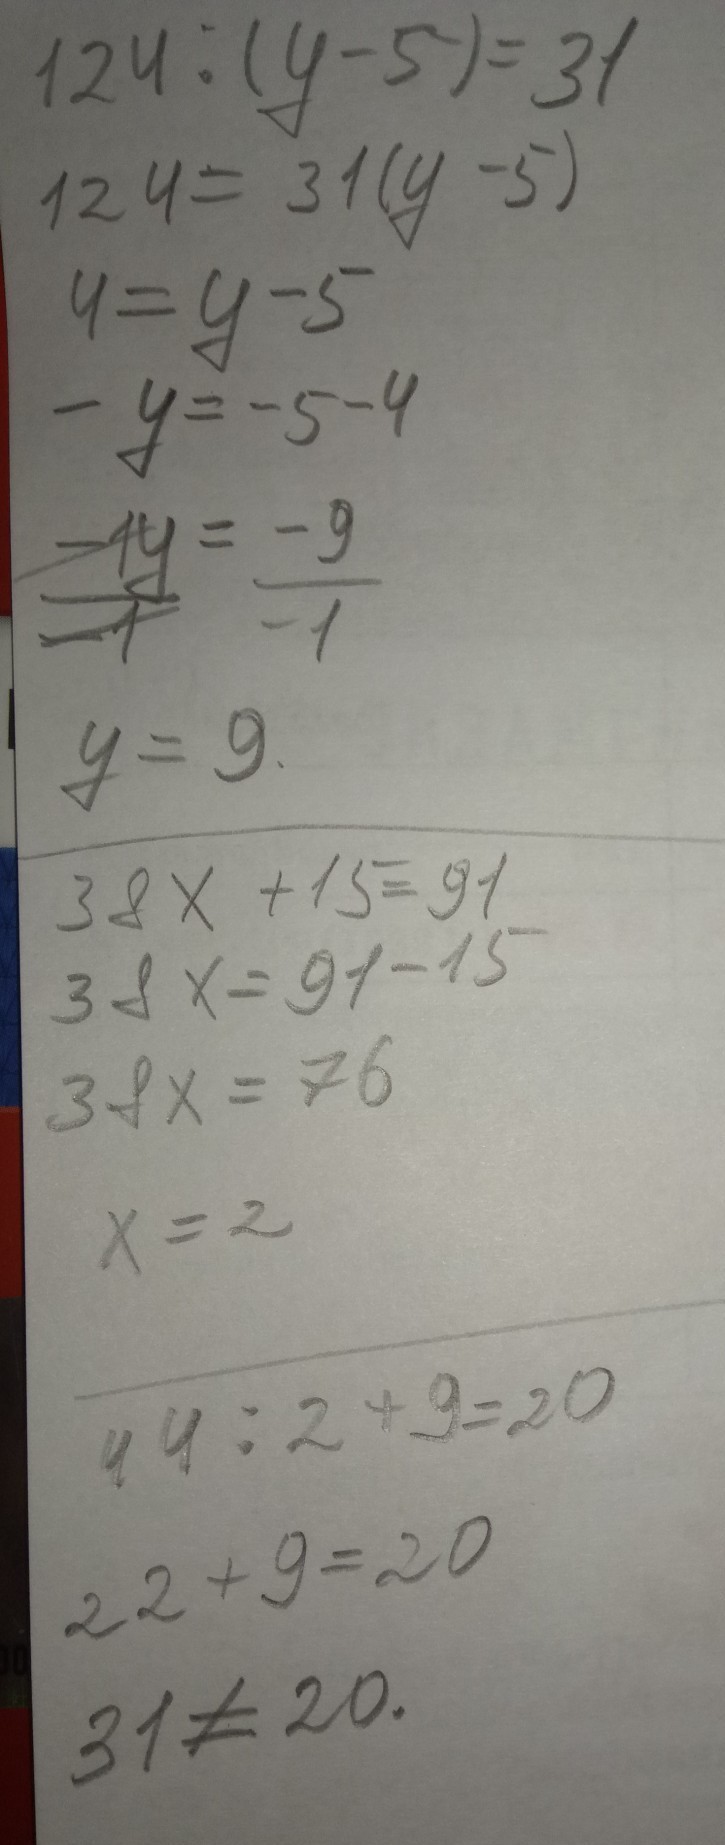 124:(y-5)=31
124=31(y-5)
4=y-5
-y=-5-4
-1y = -9
-1 -1
y=9.
38x+15=91
38x=91-15
38x=76
x=2
44:2+9=20
22+9=20
31≠20.